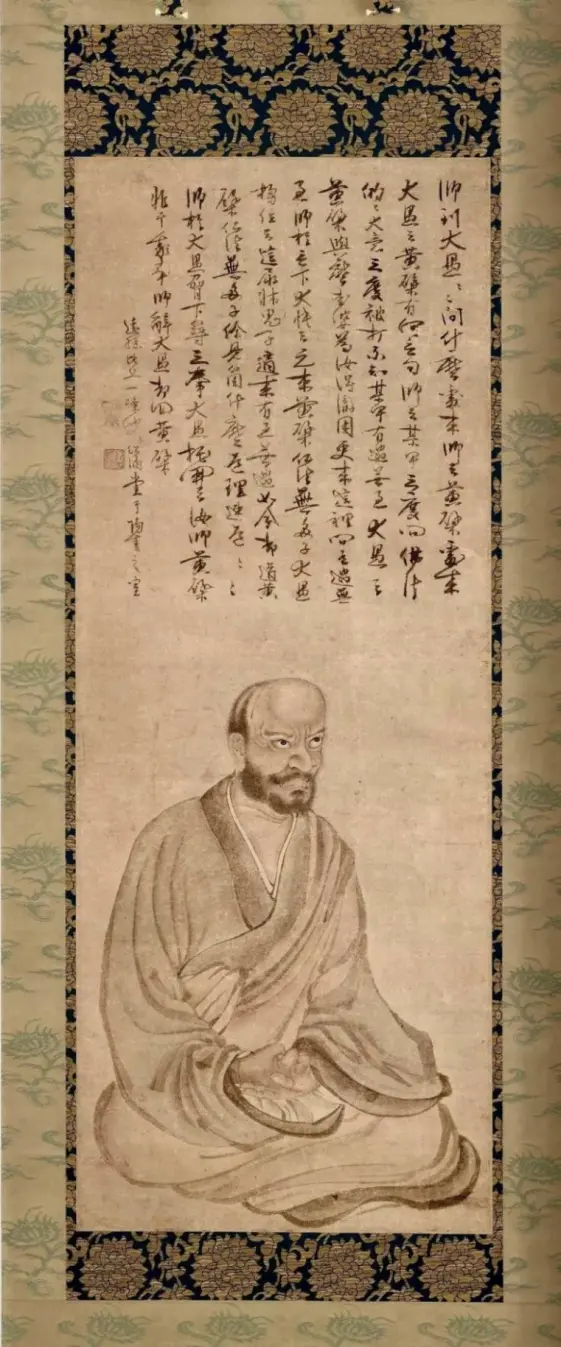 師到大愚〻〻問什麼處来師云黄檗處来
大愚云黄檗有何言句師云某甲三度問佛法
的〻大意三度被打不知某甲有過無過大愚云
黄檗與麼老婆為汝得徹困更来這裡問有過無
過師於言下大悟云元来黄檗佛法無多子大愚
搊住云這尿牀鬼子適来有過無過如今却道黄
檗佛法無多子你見箇什麼道理速道〻〻
師於大愚脅下築三拳大愚托開云汝師黄檗
非干我事師辭大愚却回黄檗
遠孫比丘一